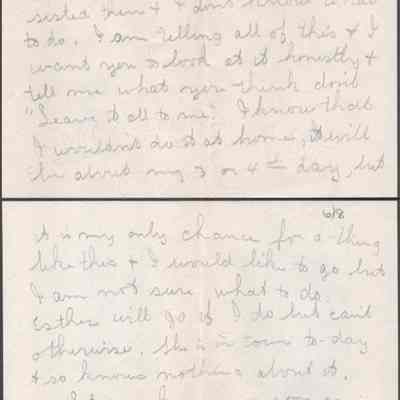 sisted then & I don't know what
to do. I am telling all of this & I
want you to look at it honestly &
tell me what you think don't
"Leave it all to me." I know that
I wouldn't do it at home, it will
be about my 3 or 4th day, but
6/8
it is my only chance for a thing
like this & I would like to go but
I am not sure what to do.
Esther will go if I do but can't
otherwise. She is in town to-day
& so knows nothing about it.